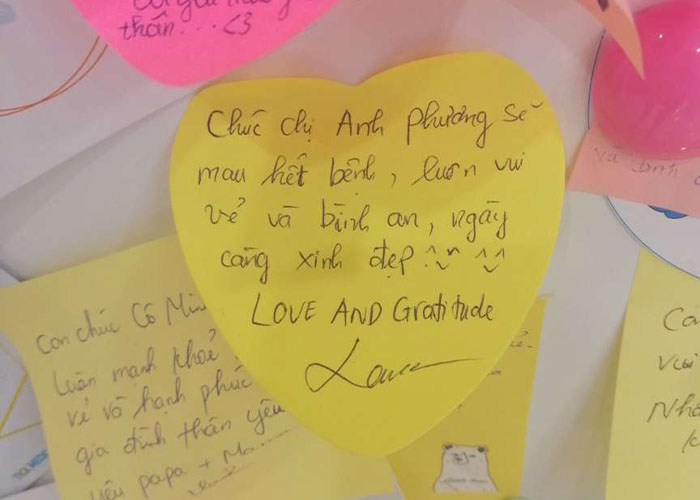 thần... <3
Chúc chị Anh Phương sẽ
mau hết bệnh, luôn vui
vẻ và bình an, ngày
càng xinh đẹp
LOVE AND Gratitude
Con chúc Cô Min
Luôn mạnh khoẻ
vẻ và hạnh phúc
gia đình thân yêu
yêu papa + Ma
và bình
Ca
vui
Nhâ